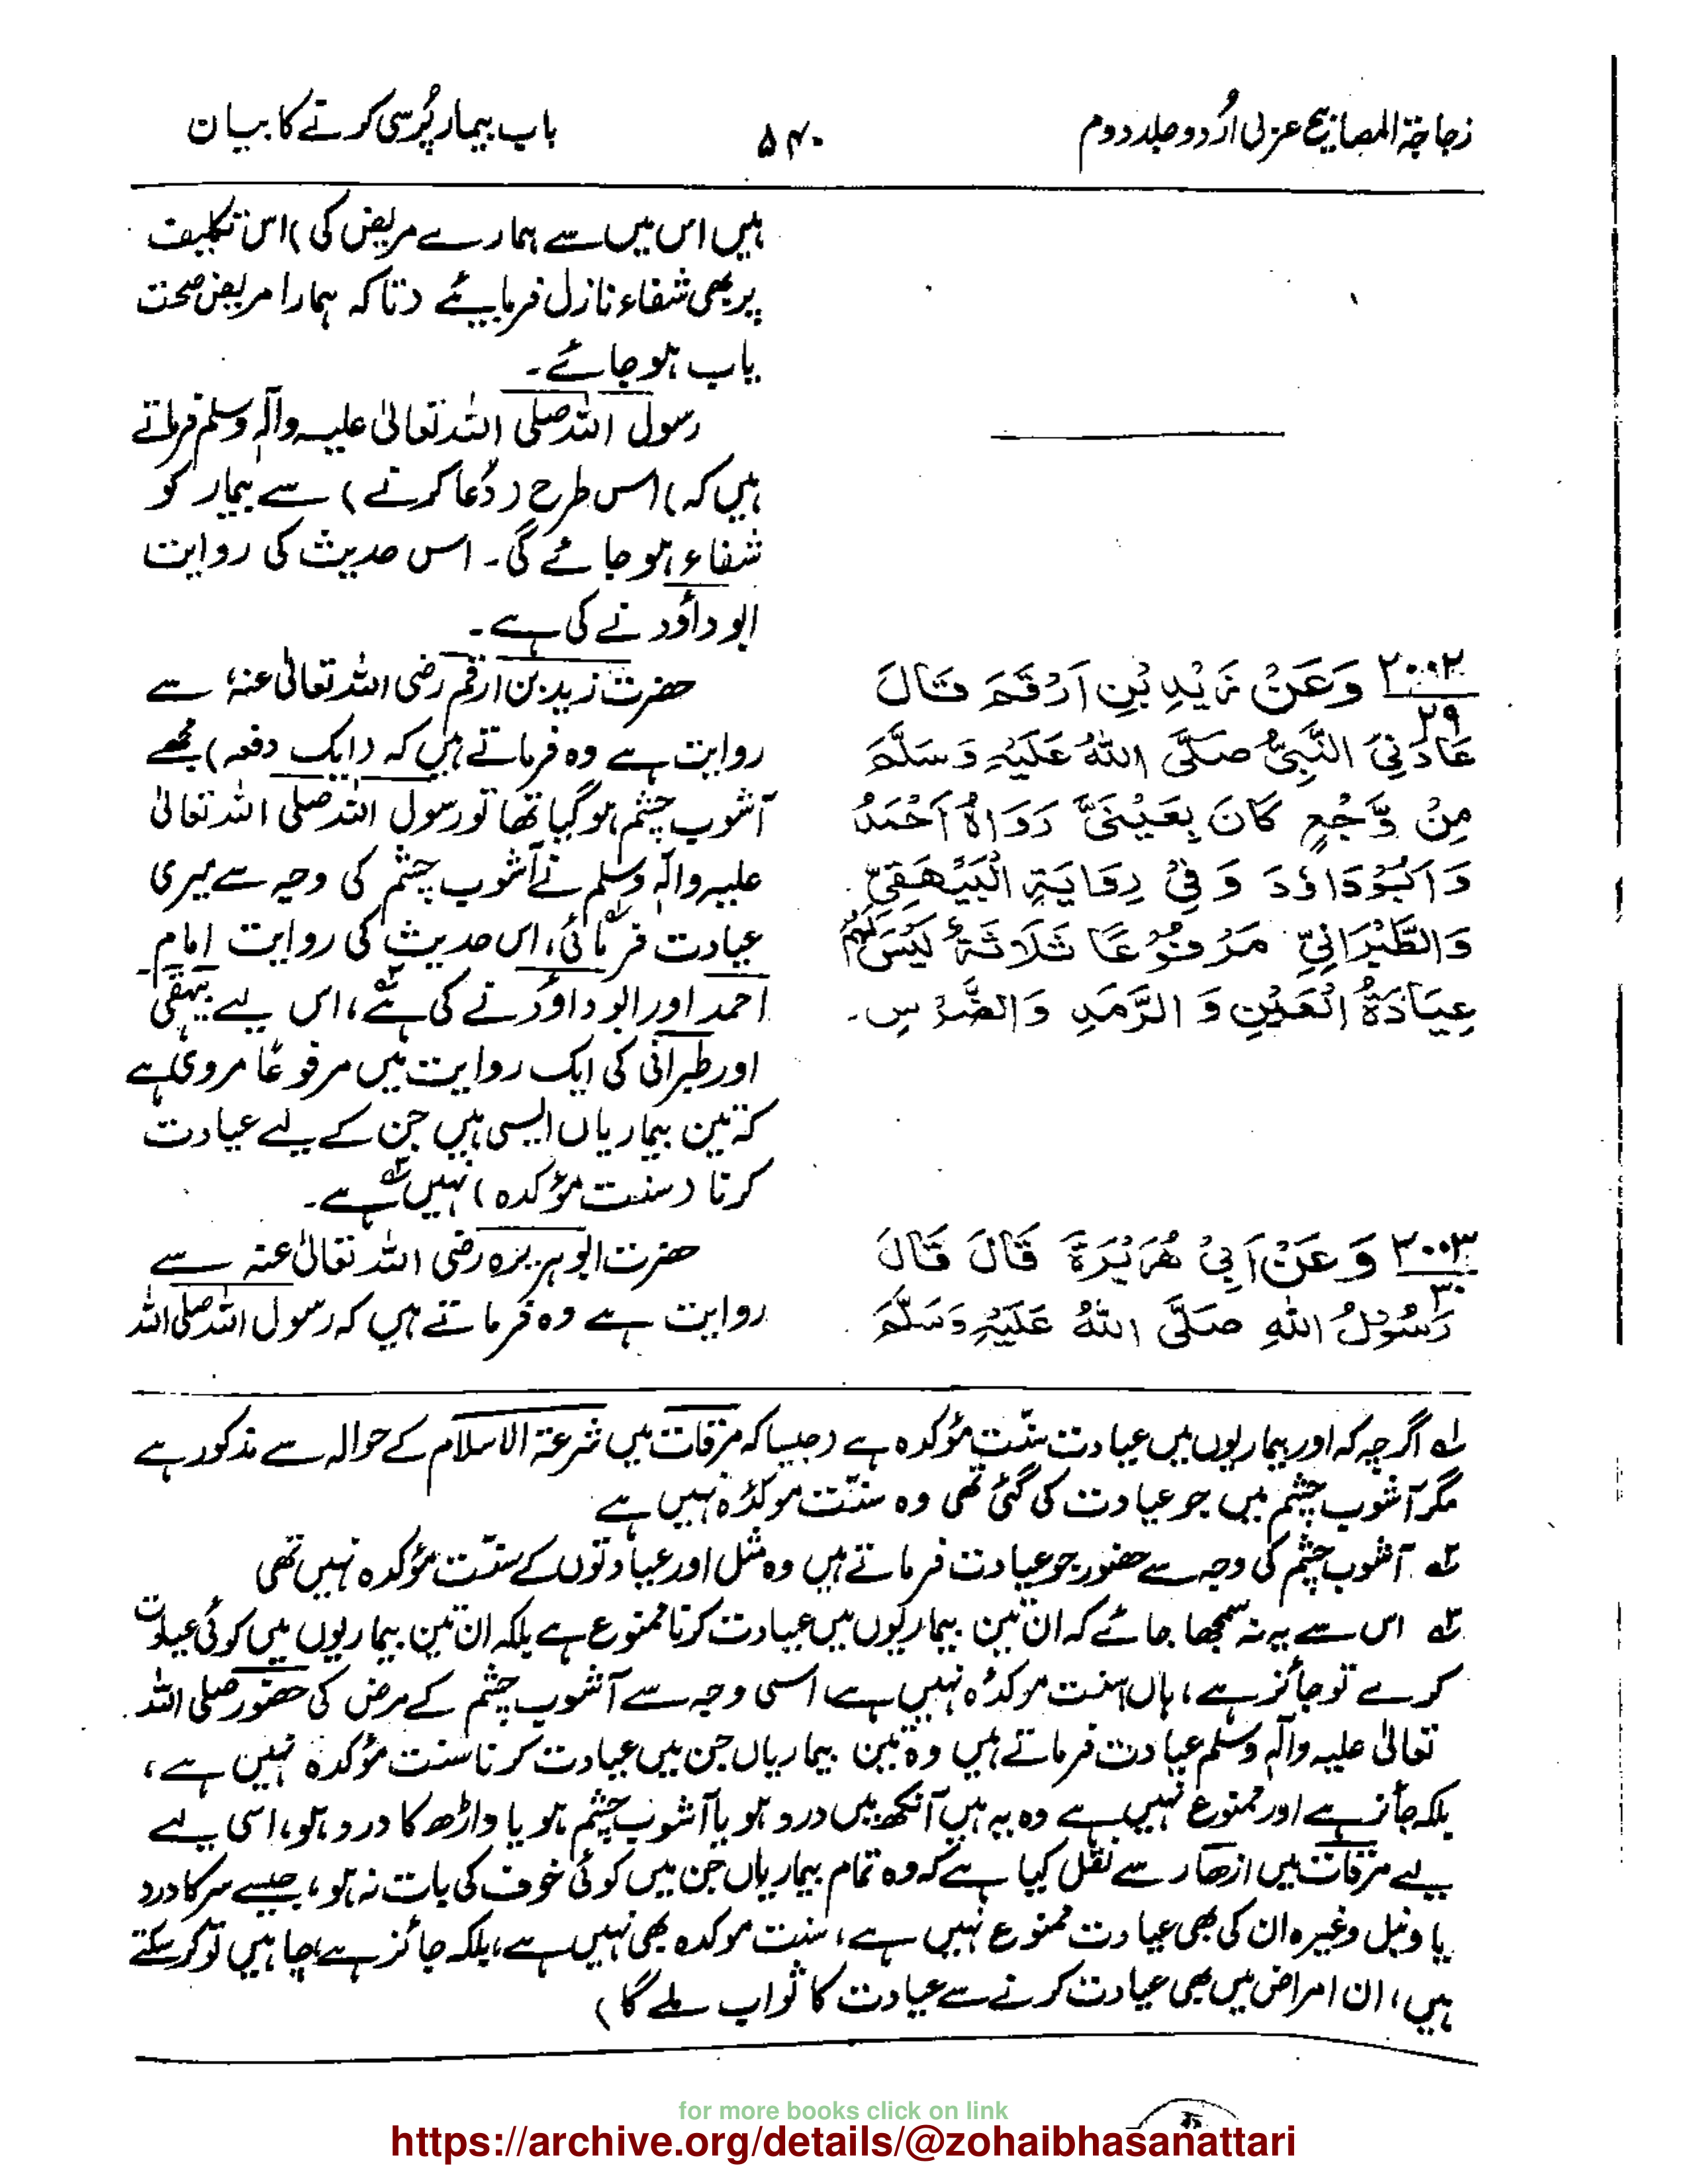 زجاجۃ المصابیح عربی اُردو جلد دوم
۵۴۰
باب بیمار پُرسی کرنے کا بیان
ہیں اس میں سے ہمارے مریض کی) اس تکلیف
پر بھی شفاء نازل فرمائیے (تاکہ ہمارا مریض صحت
یاب ہو جائے۔
رسول اللہ صلی اللہ تعالیٰ علیہ واٰلہٖ وسلم فرماتے
ہیں کہ) اس طرح (دُعا کرنے) سے بیمار کو
شفاء ہو جائے گی۔ اس حدیث کی روایت
ابو داؤد نے کی ہے۔
۲۰۰۲ وَعَنْ زَيْدِ بْنِ اَرْقَمَ قَالَ
۲۹
عَادَنِيَ النَّبِيُّ صَلَّى اللهُ عَلَيْهِ وَسَلَّمَ
مِنْ وَّجْعٍ كَانَ بِعَيْنَيَّ رَوَاهُ اَحْمَدُ
وَاَبُوْدَاؤدَ وَفِيْ رِوَايَةِ الْبَيْهَقِيِّ
وَالطَّبْرَانِيِّ مَرْفُوْعًا ثَلَاثَةٌ لَيْسَ لَهُمْ
عِيَادَةُ الْعَيْنِ وَالرَّمَدِ وَالضَّرْسِ۔
حضرت زید بن ارقم رضی اللہ تعالیٰ عنہٗ سے
روایت ہے وہ فرماتے ہیں کہ (ایک دفعہ) مجھے
آشوب چشم ہو گیا تھا تو رسول اللہ صلی اللہ تعالیٰ
علیہ واٰلہٖ وسلم نے آشوب چشم کی وجہ سے میری
عیادت فرمائی،لے اس حدیث کی روایت امام
احمد اور ابو داؤد نے کی ہے،۲ اس لیے بیہقی
اور طبرانی کی ایک روایت میں مرفوعًا مروی ہے
کہ تین بیماریاں ایسی ہیں جن کے لیے عیادت
کرنا (سنت مؤکدہ) نہیں۳ ہے۔
۲۰۰۳ وَعَنْ اَبِيْ هُرَيْرَةَ قَالَ قَالَ
۳۰
رَسُوْلُ اللهِ صَلَّى اللهُ عَلَيْهِ وَسَلَّمَ
حضرت ابو ہریرہ رضی اللہ تعالیٰ عنہ سے
روایت ہے وہ فرماتے ہیں کہ رسول اللہ صلی اللہ
لے اگرچہ کہ اور بیماریوں میں عیادت سنّت مؤکدہ ہے (جیسا کہ مرقات میں شرعۃ الاسلام کے حوالہ سے مذکور ہے
مگر آشوب چشم میں جو عیادت کی گئی تھی وہ سنّت موکدہ نہیں ہے
۲ آشوب چشم کی وجہ سے حضور جو عیادت فرماتے ہیں وہ مثل اور عیادتوں کے سنّت مؤکدہ نہیں تھی
۳ اس سے یہ نہ سمجھا جائے کہ ان تین بیماریوں میں عیادت کرنا ممنوع ہے بلکہ ان تین بیماریوں میں کوئی عیادت
کرے تو جائز ہے، ہاں سنت موکدہ نہیں ہے، اسی وجہ سے آشوب چشم کے مرض کی حضور صلی اللہ
تعالیٰ علیہ واٰلہٖ وسلم عیادت فرماتے ہیں وہ تین بیماریاں جن میں عیادت کرنا سنت مؤکدہ نہیں ہے،
بلکہ جائز ہے اور ممنوع نہیں ہے وہ یہ ہیں آنکھ میں درد ہو یا آشوب چشم ہو یا داڑھ کا درد ہو، اسی لیے
لیے مرقات میں ازہار سے نقل کیا ہے کہ وہ تمام بیماریاں جن میں کوئی خوف کی بات نہ ہو، جیسے سر کا درد
یا دنبل وغیرہ ان کی بھی عیادت ممنوع نہیں ہے، سنت موکدہ بھی نہیں ہے، بلکہ جائز ہے، چاہیں تو کر سکتے
ہیں، ان امراض میں بھی عیادت کرنے سے عیادت کا ثواب ملے گا)
for more books click on link
https://archive.org/details/@zohaibhasanattari